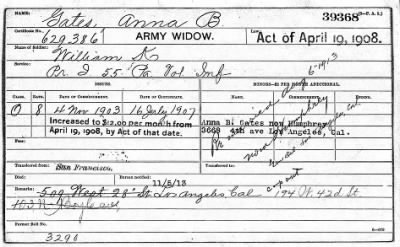 NAME: 39368
Gates, Anna B
Certificate No.
629.386 ARMY WIDOW. Law: Act of April 19, 1908.
Name of Soldier:
William K
Service:
Pr. I 55" Pa. Vol Inf
CLASS. RATE. DATE OF COMMENCEMENT. DATE OF CERTIFICATE.
O 8 4 Nov 1903 16 July 1907
Increased to $12.00 per month from
April 19, 1908, by Act of that date.
Remarried Aug 6" 1913
now Humphrey
Anna B. Gates now Humphrey
3668 4th ave Los Angeles, Cal.
Transferred from
San Francisco.
Bureau 11/5/13
Transferred to
Remarks: 509 West 28" St Los Angeles Cal 194 W. 42d St
Former Roll No.
3296